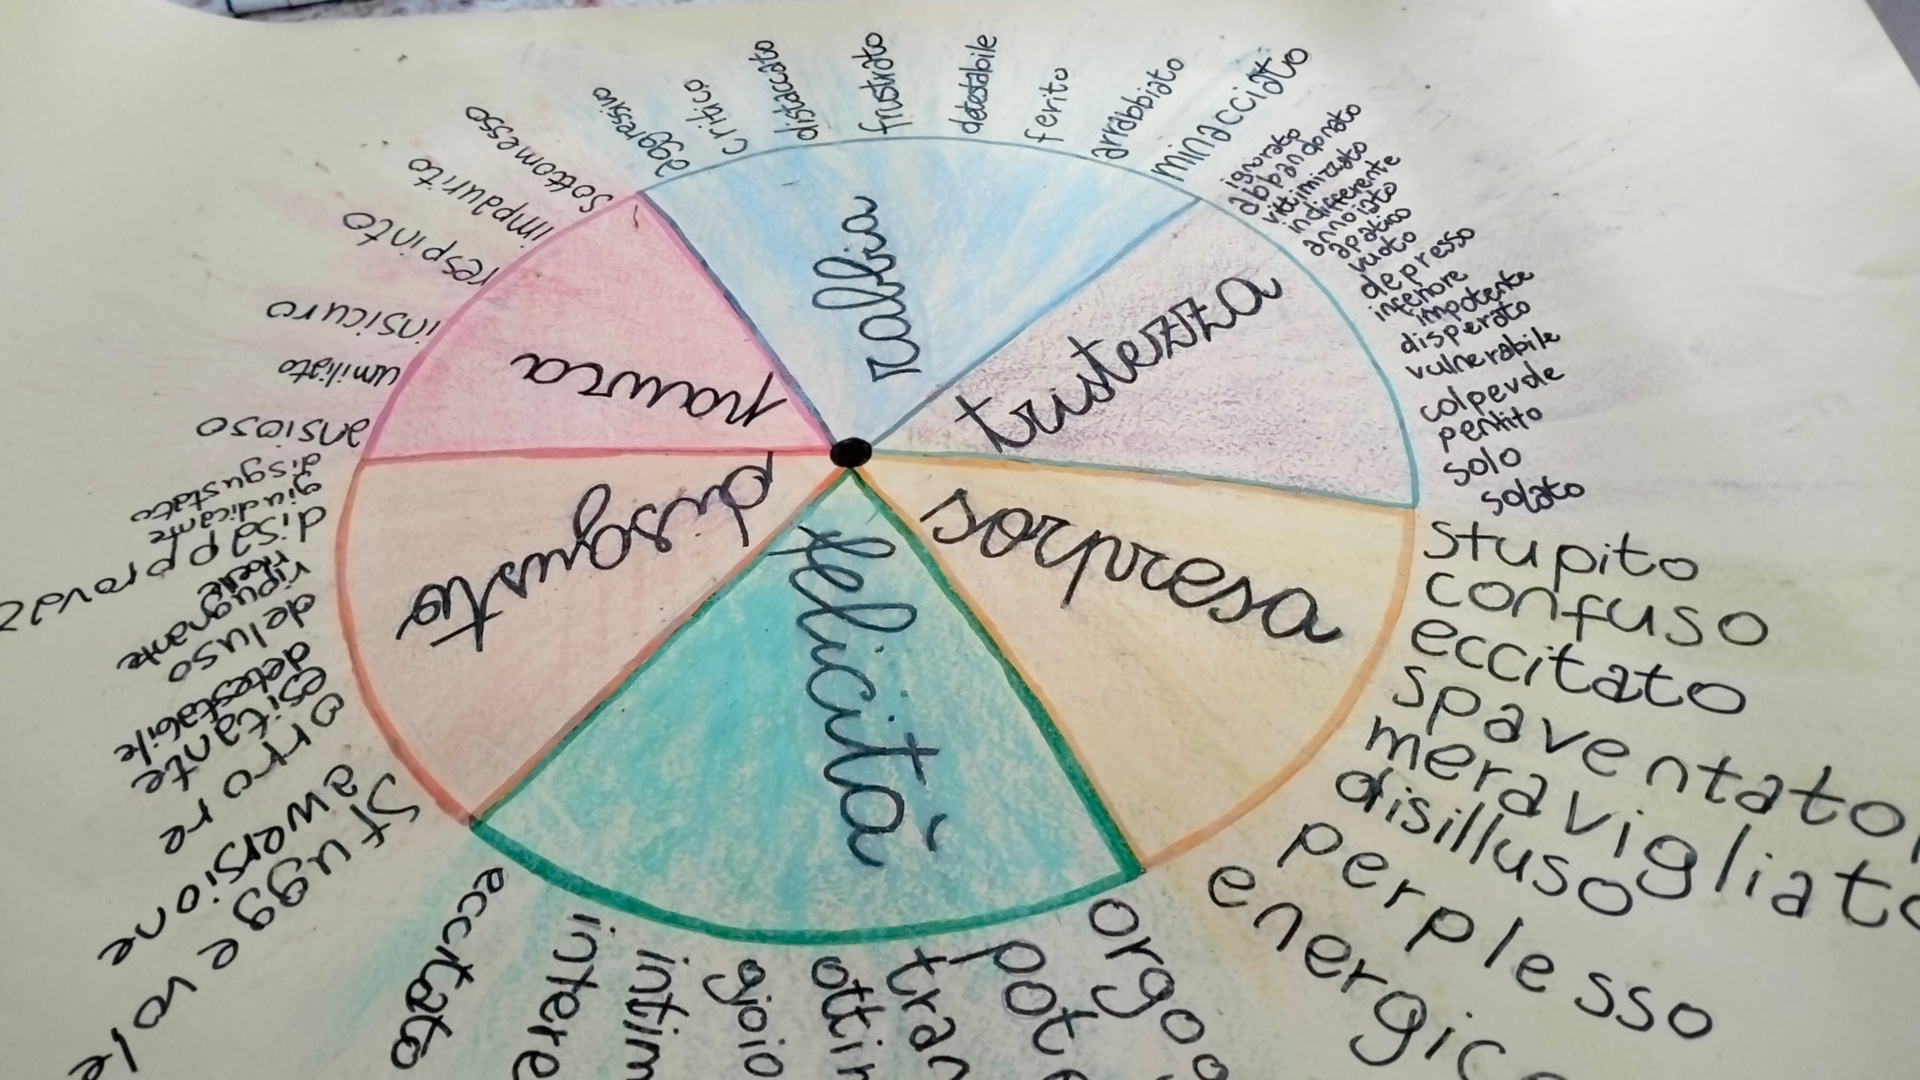 rabbia
aggressivo
critico
distaccato
frustrato
detestabile
ferito
arrabbiato
minacciato
tristezza
ignorato
abbandonato
vittimizzato
indifferente
annoiato
apatico
vuoto
depresso
inferiore
impotente
disperato
vulnerabile
colpevole
pentito
solo
solato
sorpresa
stupito
confuso
eccitato
spaventato
meravigliato
disilluso
perplesso
energico
felicità
orgo
pote
tran
ottim
gioio
intim
intere
eccitato
disgusto
sfuggevole
avversione
orrore
esitante
detestabile
deluso
ripugnante
disapprovaz
giudicante
disgustato
paura
ansioso
umiliato
insicuro
respinto
impaurito
sottomesso